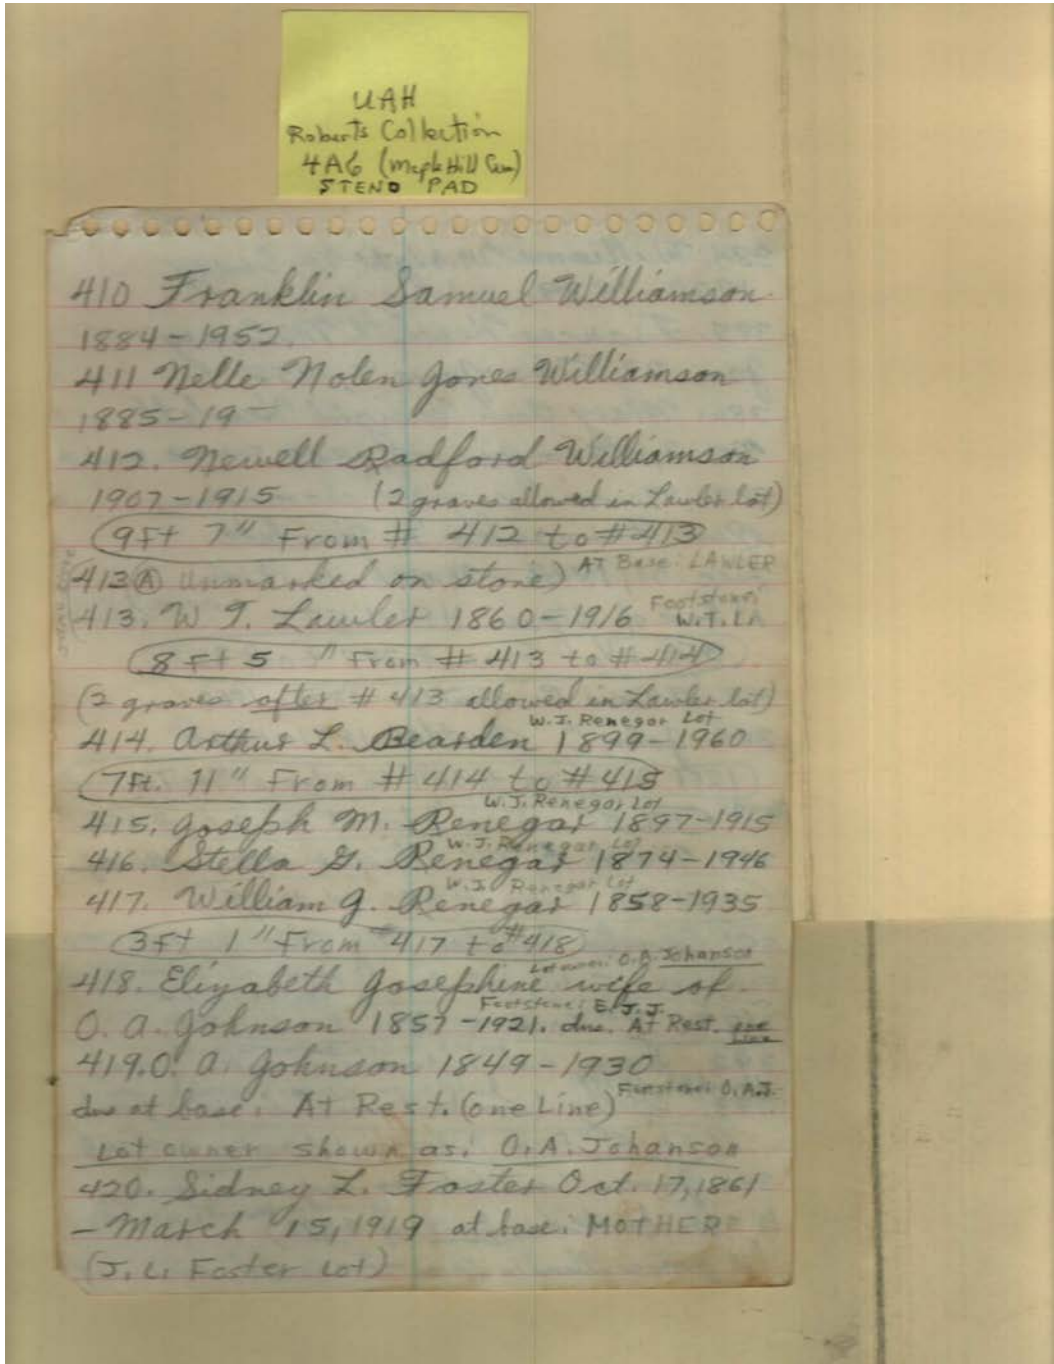 UAH
Roberts Collection
4A6 (Maple Hill Cem)
STENO PAD
410 Franklin Samuel Williamson
1884-1952.
411 Nelle Nolen Jones Williamson
1885-19-
412. Newell Radford Williamson
1907-1915 (2 graves allowed in Lawler lot)
9Ft 7" From # 412 to #413
413 Ⓐ Unmarked on stone) AT Base: LAWLER
413. W. T. Lawler 1860-1916 Footstone: W.T.L.
8 Ft 5 " From # 413 to #414
(2 graves after #413 allowed in Lawler lot)
W.J. Renegar Lot
414. Arthur L. Bearden 1899-1960
7Ft. 11" From # 414 to #415
W.J. Renegar Lot
415. Joseph M. Renegar 1897-1915
W.J. Renegar Lot
416. Stella G. Renegar 1874-1946
W.J. Renegar Lot
417. William J. Renegar 1858-1935
3Ft 1" From #417 to #418
Lot owner: O.A. Johanson
418. Elizabeth Josephine wife of
Footstone: E.J.J.
O. A. Johnson 1857-1921. At Rest. one Line
419. O. A. Johnson 1849-1930
Footstone: O.A.J.
at base: At Rest. (one Line)
Lot owner shown as: O.A. Johanson
420. Sidney L. Foster Oct. 17, 1861
- March 15, 1919 at base: MOTHER
(J. L. Foster Lot)